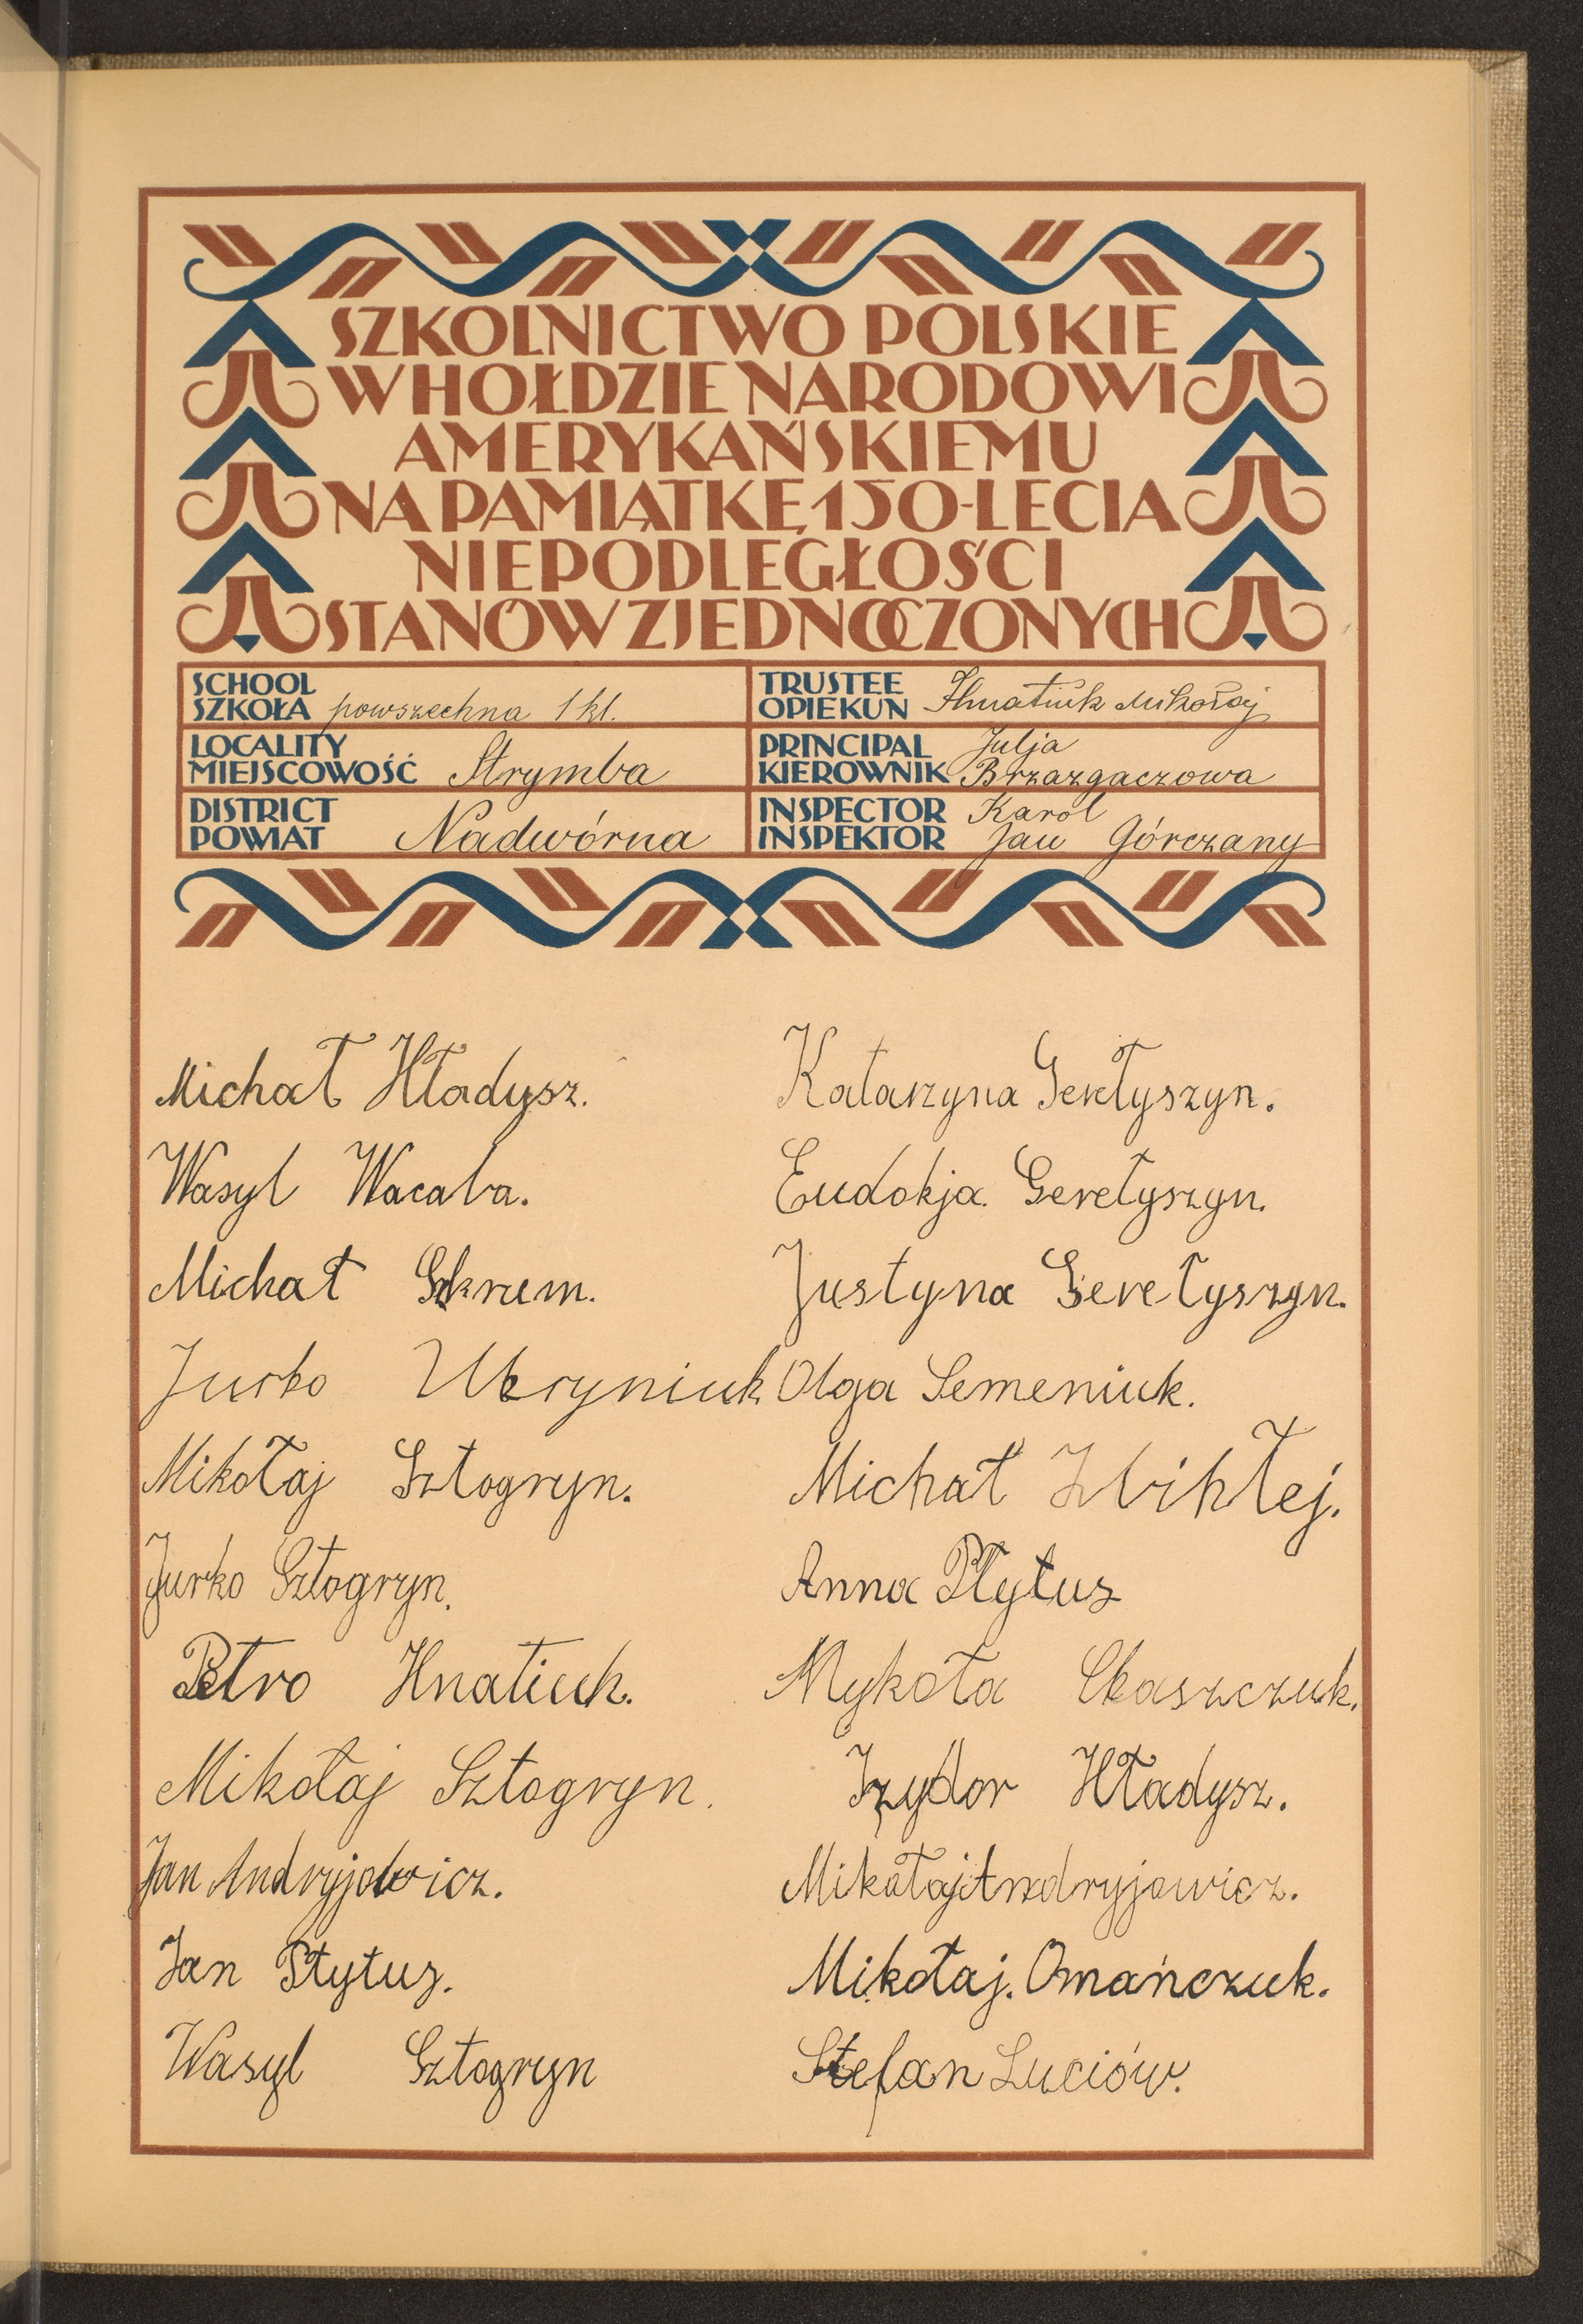 SZKOLNICTWO POLSKIE
W HOŁDZIE NARODOWI
AMERYKAŃSKIEMU
NA PAMIĄTKĘ 150-LECIA
NIEPODLEGŁOŚCI
STANÓW ZJEDNOCZONYCH
SCHOOL
SZKOŁA powszechna 1 kl.
TRUSTEE
OPIEKUN Hnatiuk Mikołaj
LOCALITY
MIEJSCOWOŚĆ Strymba
PRINCIPAL Julja
KIEROWNIK Brzazgaczowa
DISTRICT
POWIAT Nadwórna
INSPECTOR Karol
INSPEKTOR Jan Górczany
Michał Hładysz.
Wasyl Wacaba.
Michał Skrum.
Jurko Ukryniuk
Mikołaj Sztogryn.
Jurko Sztogryn.
Petro Hnatiuk.
Mikołaj Sztogryn.
Jan Andryjowicz.
Jan Płytus.
Wasyl Sztogryn
Katarzyna Serełyszyn.
Eudokja Serełyszyn.
Justyna Serełyszyn.
Olga Semeniuk.
Michał
Anna Płytus
Mykoła
Izydor Hładysz.
Mikołaj Andryjowicz.
Mikołaj. Omańczuk.
Stefan Luciów.